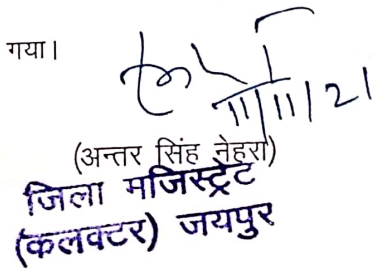 गया।
11/11/21
(अन्तर सिंह नेहरा)
जिला मजिस्ट्रेट
(कलक्टर) जयपुर